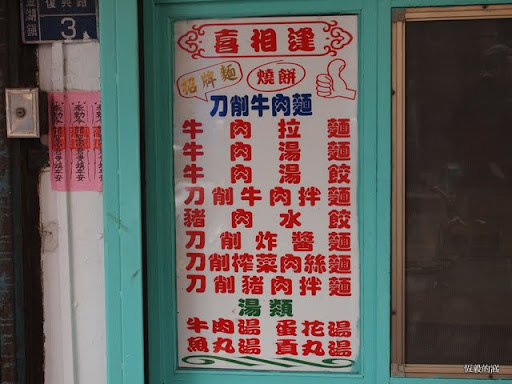 喜相逢
招牌麵
燒餅
刀削牛肉麵
牛肉拉麵
牛肉湯麵
牛肉湯餃
刀削牛肉拌麵
豬肉水餃
刀削炸醬麵
刀削榨菜肉絲麵
刀削豬肉拌麵
湯類
牛肉湯 蛋花湯
魚丸湯 貢丸湯
金湖鎮
復興路
3
恆毅的窩